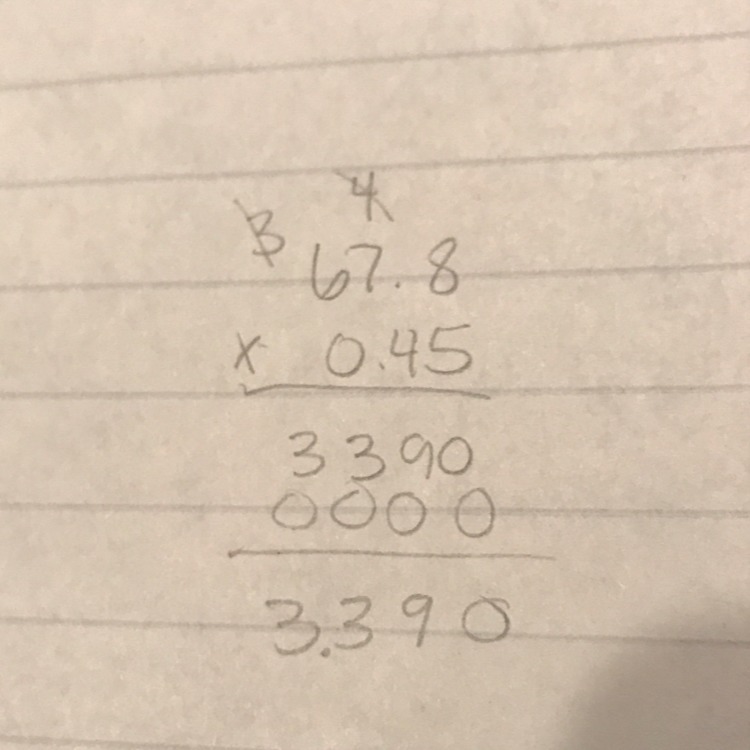 3 4
67.8
x 0.45
3390
0000
3.390